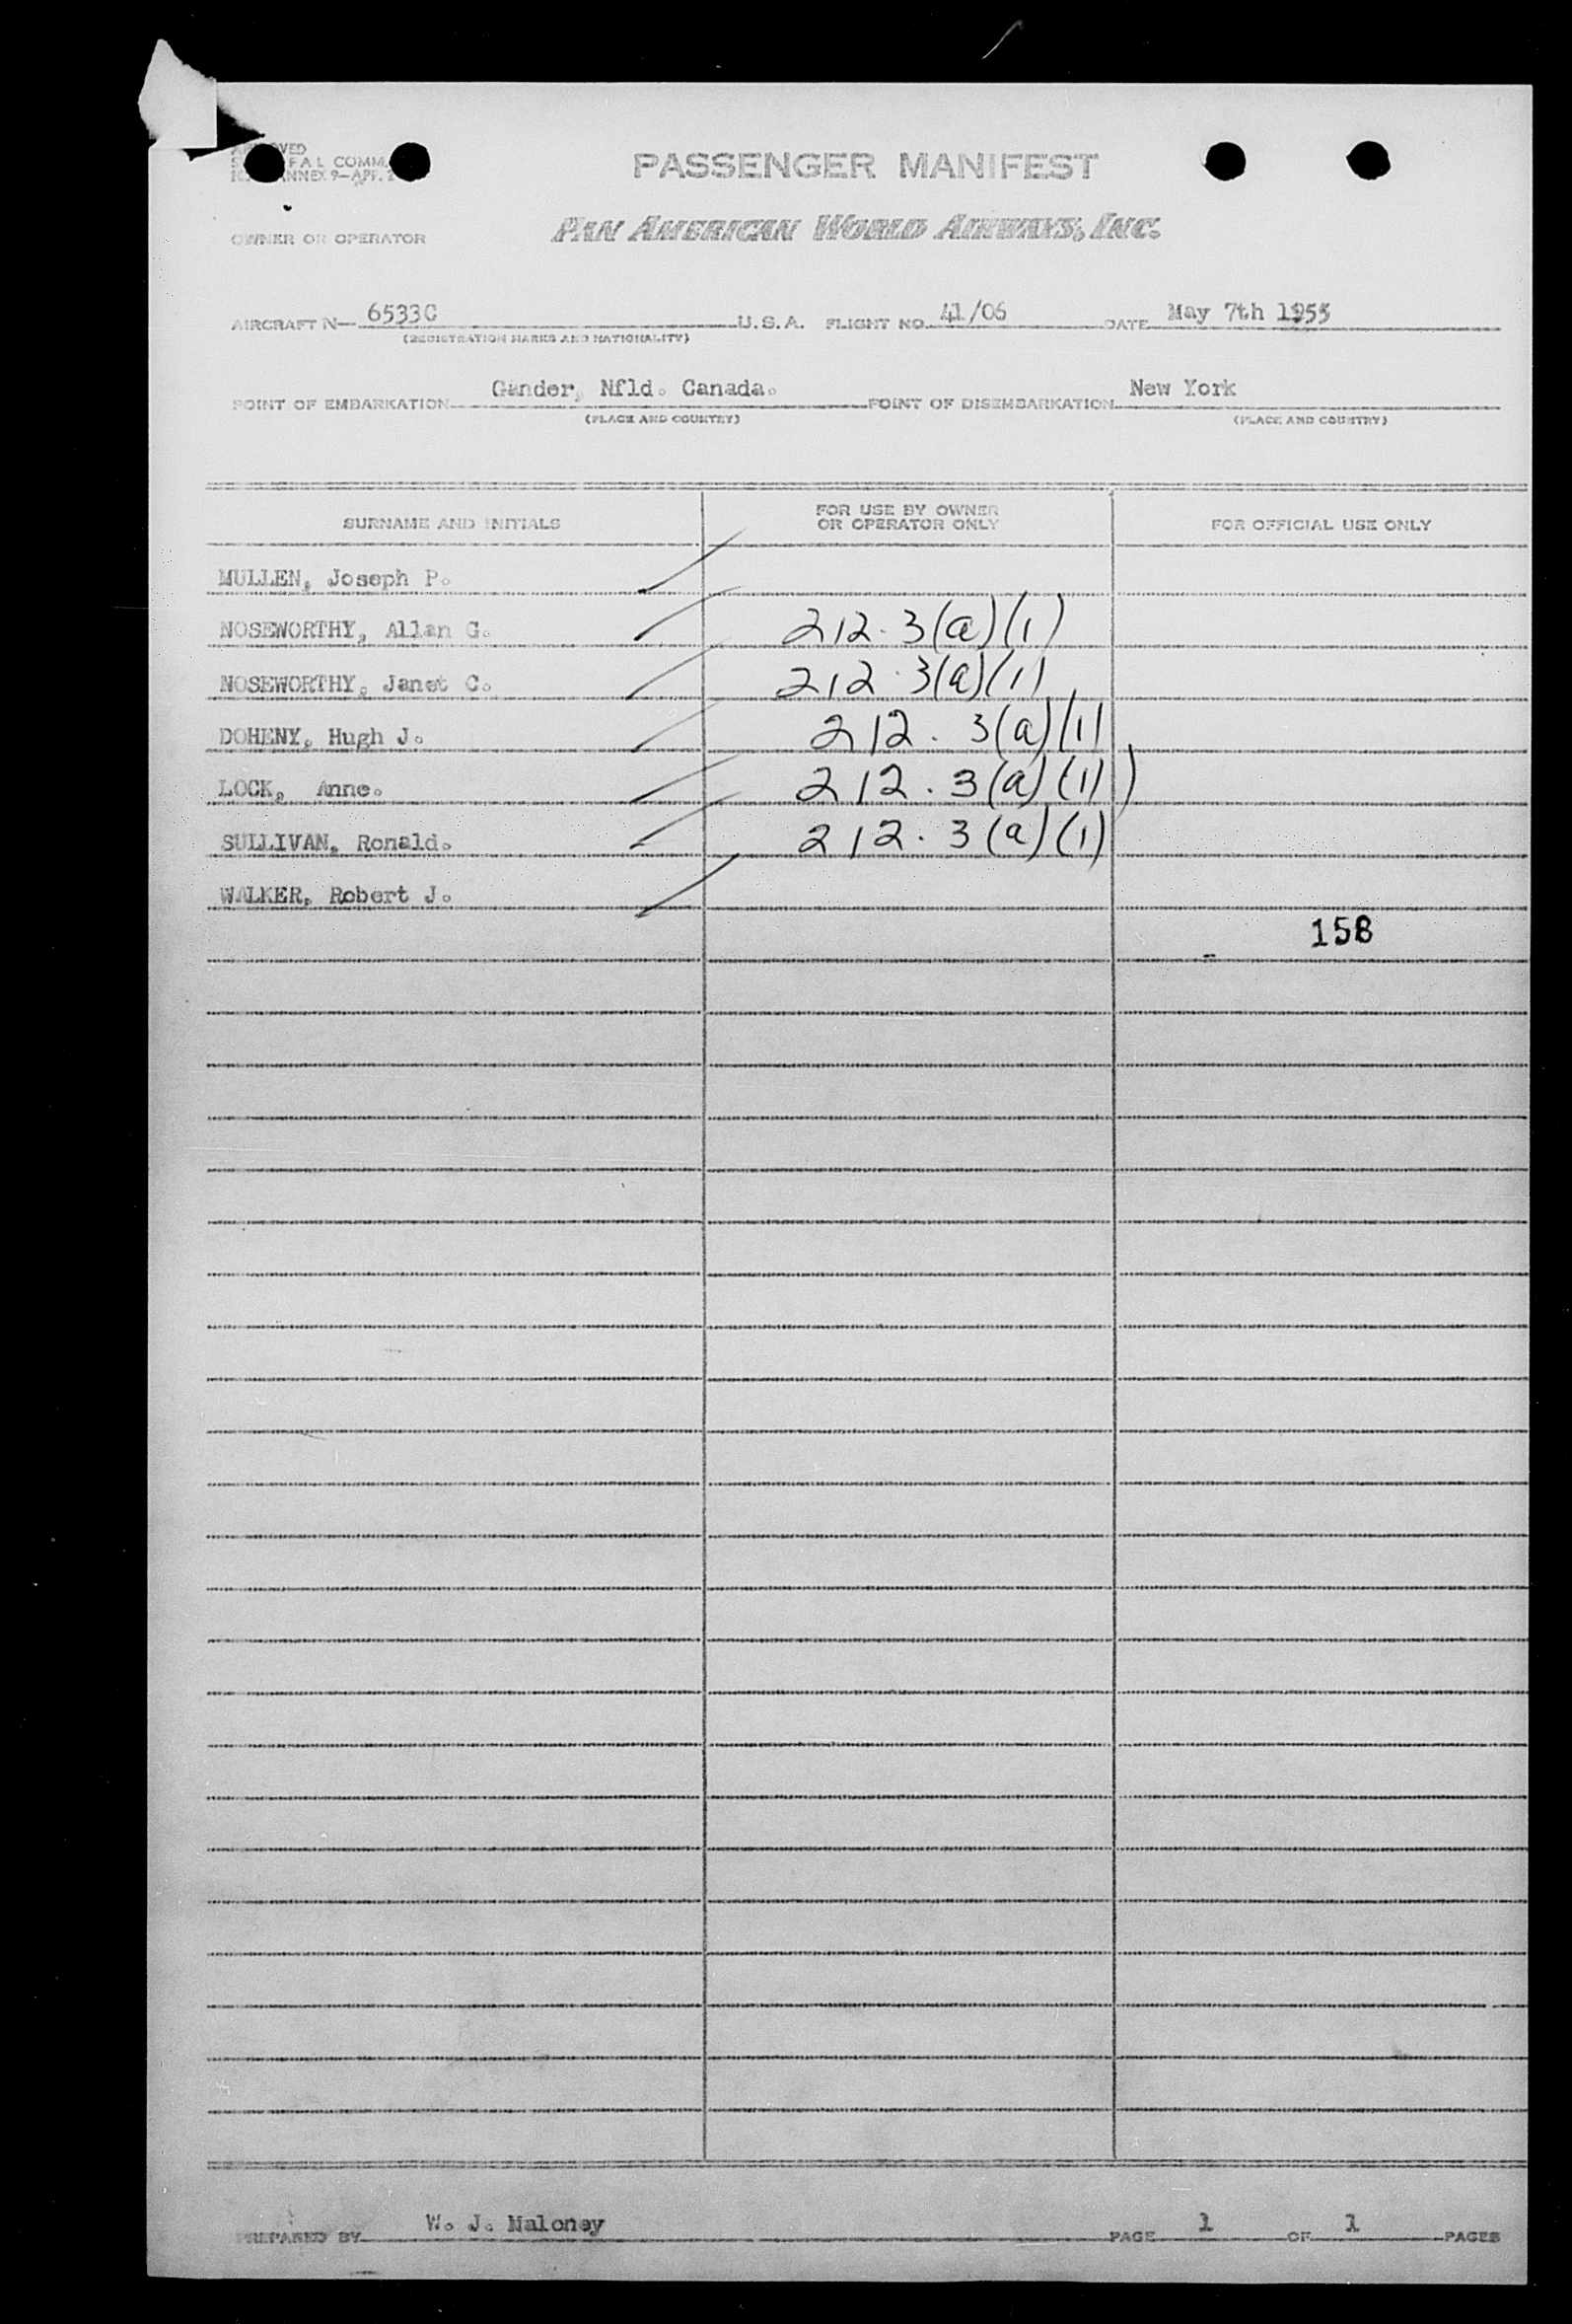 PASSENGER MANIFEST
FAL COMM.
ANNEX 9—APR.
OWNER OR OPERATOR
PAN AMERICAN WORLD AIRWAYS, INC.
AIRCRAFT N— 6533C U.S.A. FLIGHT NO. 41/06 DATE May 7th 1955
(REGISTRATION MARKS AND NATIONALITY)
POINT OF EMBARKATION Gander, Nfld. Canada. POINT OF DISEMBARKATION New York
(PLACE AND COUNTRY) (PLACE AND COUNTRY)
SURNAME AND INITIALS FOR USE BY OWNER OR OPERATOR ONLY FOR OFFICIAL USE ONLY
MULLEN, Joseph P.
NOSEWORTHY, Allan G. 212.3(a)(1)
NOSEWORTHY, Janet C. 212.3(a)(1)
DOHENY, Hugh J. 212.3(a)(1)
LOCK, Anne. 212.3(a)(1))
SULLIVAN, Ronald. 212.3(a)(1)
WALKER, Robert J.
158
PREPARED BY W. J. Maloney PAGE 1 OF 1 PAGES